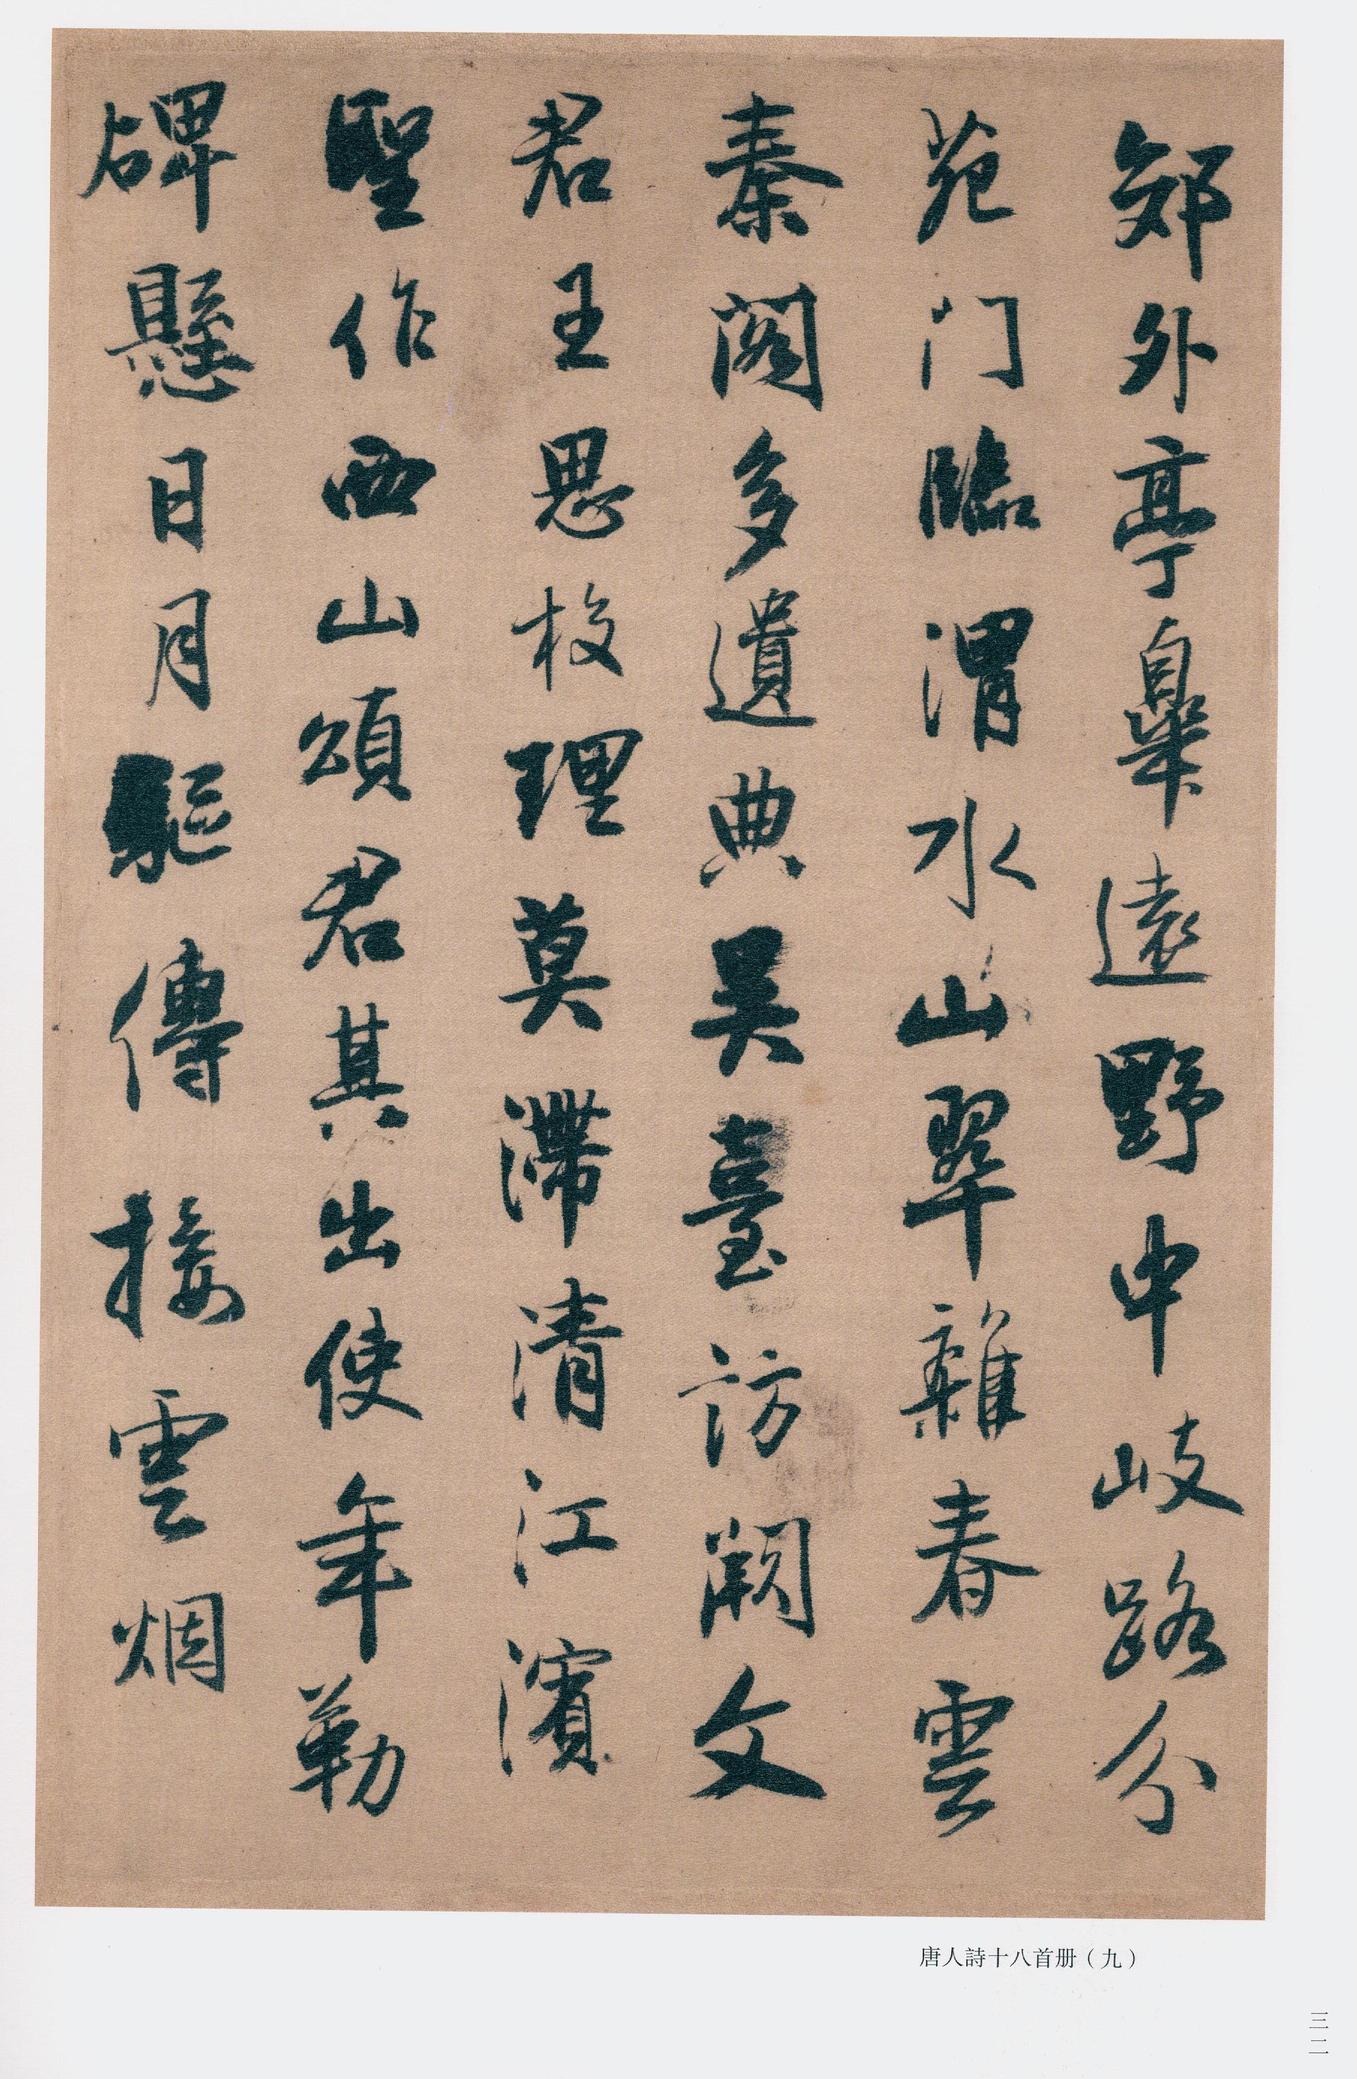 郊外亭皋遠野中岐路分
苑门臨渭水山翠雜春雲
秦阁多遺典吴臺訪阙文
君王思校理莫滯清江濱
聖作西山頌君其出使年勒
碑懸日月驅傳接雲烟
唐人詩十八首册（九）
三二